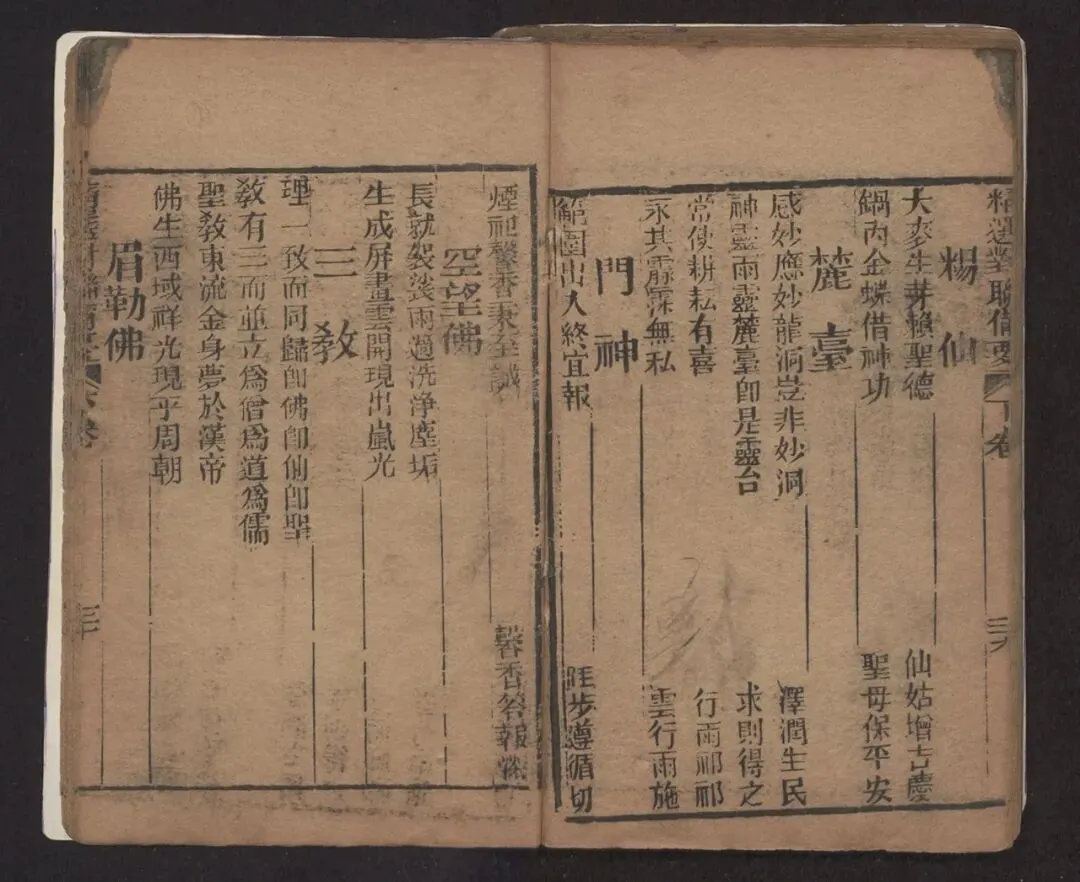 精選對聯備要 下卷 三六
楊仙
大麥生芽賴聖德 仙姑增吉慶
鍋內金蝶借神功 聖母保平安
麓臺
感妙應妙龍洞豈非妙洞 澤潤生民
神靈雨靈麓臺即是靈台 求則得之
常使耕耘有喜 行雨祁祁
永其霢霂無私 雲行雨施
門神
範圍出入終宜報 跬步遵循切
煙祀馨香秉至誠 馨香答報
空望佛
長就袈裟雨過洗净塵垢
生成屏畫雲開現出嵐光
三教
理一致而同歸即佛即仙即聖
教有三而並立爲僧爲道爲儒
聖教東流金身夢於漢帝
佛生西域祥光現乎周朝
眉勒佛
卷